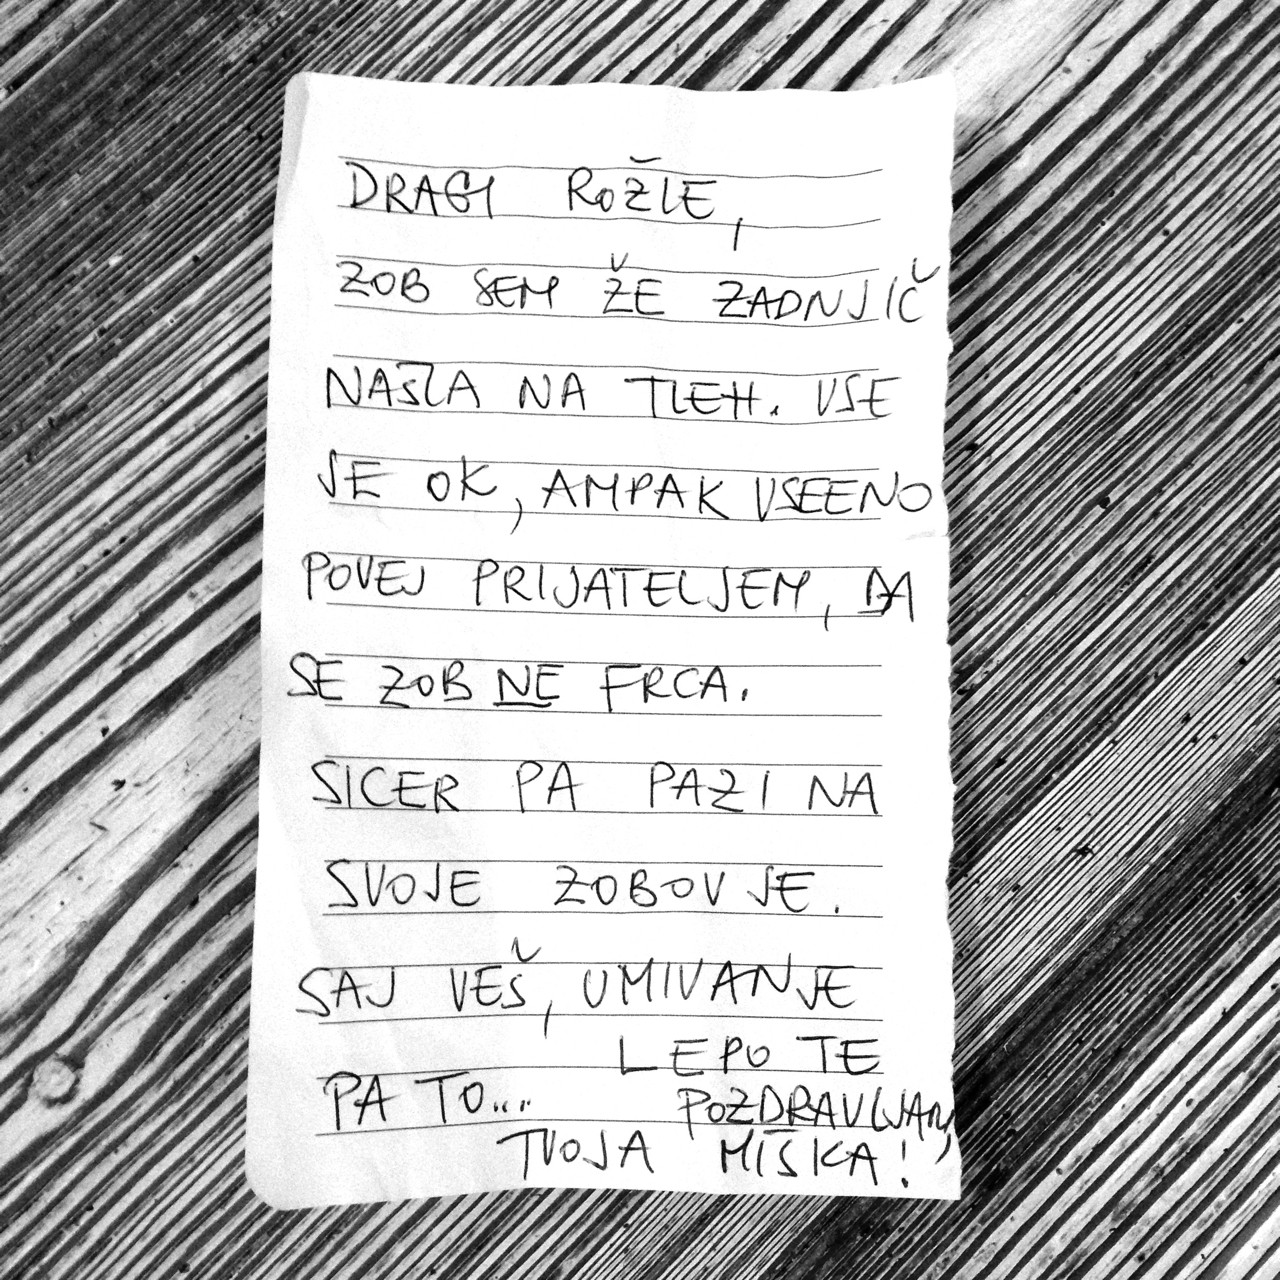 DRAGI ROŽLE,
ZOB SEM ŽE ZADNJIČ
NAŠLA NA TLEH. VSE
JE OK, AMPAK VSEENO
POVEJ PRIJATELJEM, DA
SE ZOB NE FRCA.
SICER PA PAZI NA
SVOJE ZOBOVJE.
SAJ VEŠ, UMIVANJE
PA TO...
LEPO TE
POZDRAVLJAM,
TVOJA MIŠKA!